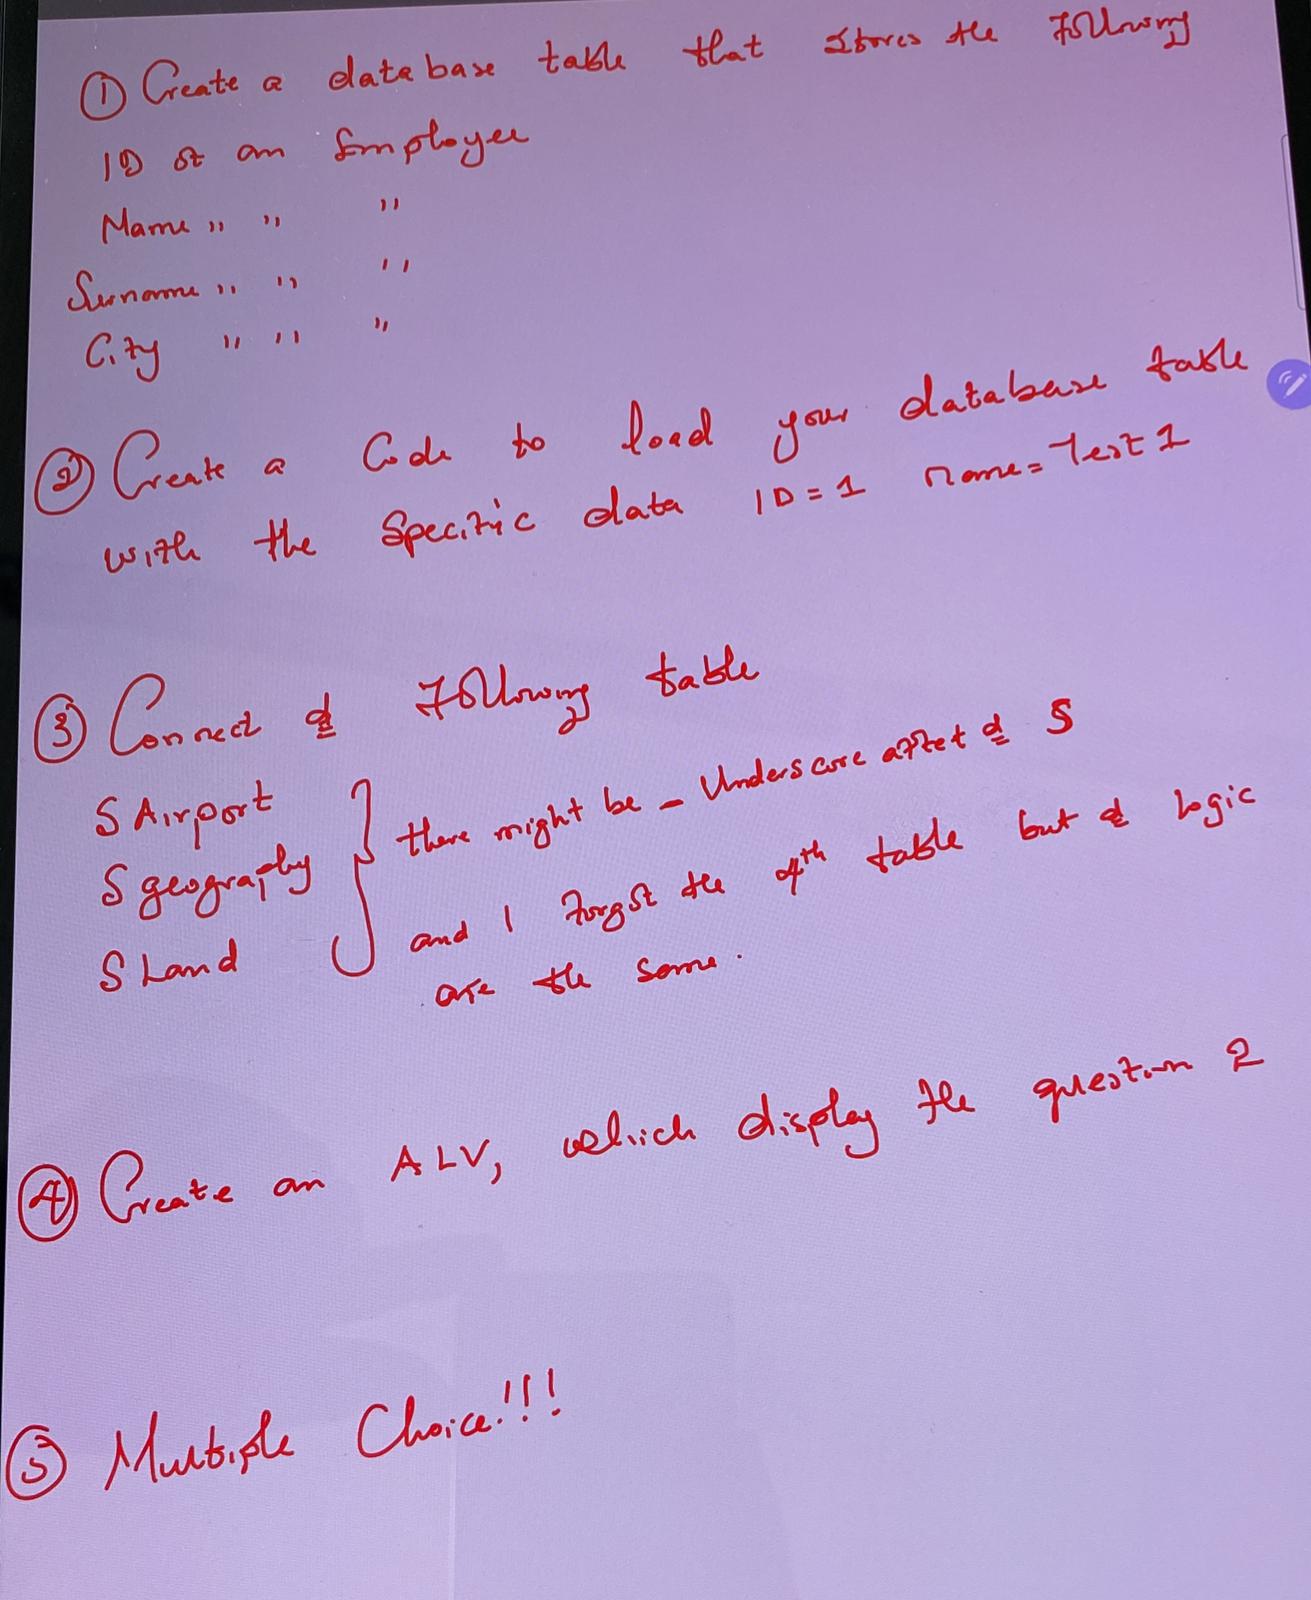 ① Create a database table that stores the following
ID of an Employee
Name ,, ,, ,,
Surname ,, ,, ,,
City ,, ,, ,,
② Create a Code to load your database table
with the specific data ID = 1 name = Test 1
③ Connect following table
S Airport
S geography
S Land
there might be _ Underscore after S
and I forgot the 4th table but logic
are the same.
④ Create an ALV, which display the question 2
⑤ Multiple Choice!!!